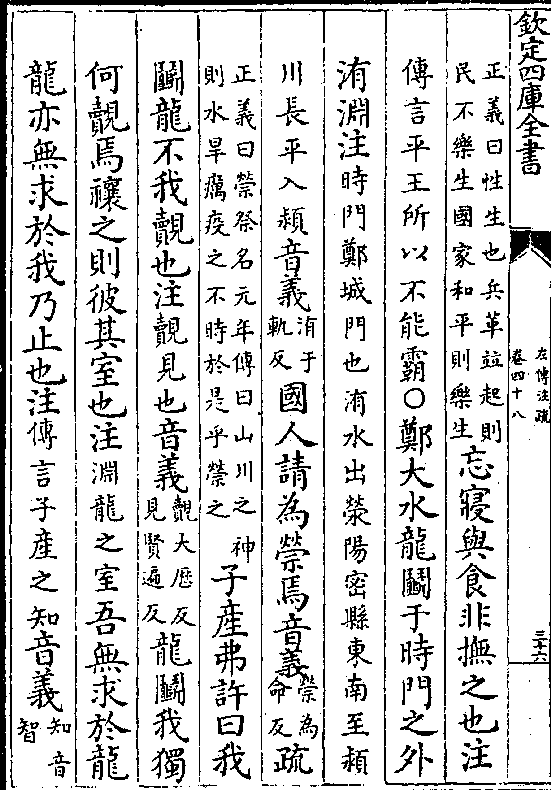 欽定四庫全書
左傳注疏
卷四十八
三十六
正義曰性生也兵革竝起則
民不樂生國家和平則樂生
忘寢與食非撫之也注
傳言平王所以不能霸○鄭大水龍鬭于時門之外
洧淵注時門鄭城門也洧水出滎陽密縣東南至潁
川長平入潁音義洧于
軌反
國人請為禜焉音義禜為
命反
疏
正義曰禜祭名元年傳曰山川之神
則水旱癘疫之不時於是乎禜之
子產弗許曰我
鬭龍不我覿也注覿見也音義覿大歷反
見賢遍反
龍鬭我獨
何覿焉禳之則彼其室也注淵龍之室吾無求於龍
龍亦無求於我乃止也注傳言子產之知音義知音
智